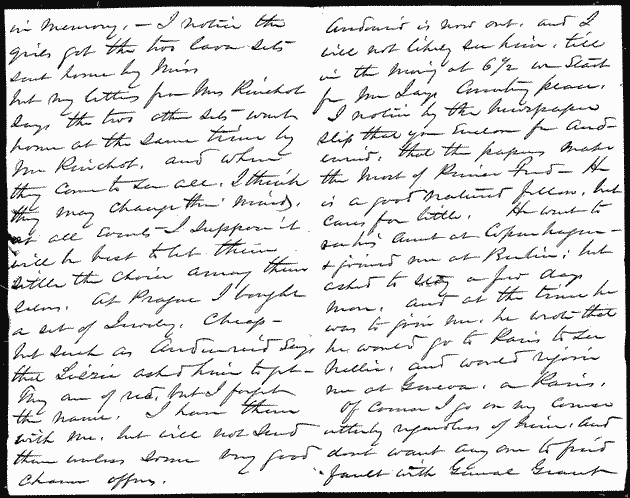 in memory. — I notice the
girls got the two lava sets
sent home by Miss
but my letter from Mrs
says the two other sets went
home at the same time by
Mr and when
they come to see all, I think
they may change their minds,
at all events — I suppose it
will be best to let them
settle the choice among them
selves. At Prague I bought
a set of Jewelry, Cheap —
but such as Audenreid says
that Lizzie asked him to get —
They are of red, but I forget
the name. I have them
with me, but will not send
them unless some very good
chance offers.
Audenreid is now out, and I
will not likely see him, till
in the morning at 6 1/2 we start
for
I notice by the newspaper
slip that you enclose for Aud-
enreid, that the papers make
the most of Fred — He
is a good natured fellow, but
cares for little. He went to
see his Aunt at Copenhagen —
& joined me at Berlin; but
asked to stay a few days
more. and at the time he
was to join me, he wrote that
he would go to Paris to see
Nellie, and would rejoin
me at Geneva, or Paris.
Of course I go on my course
utterly regardless of him, and
dont want any one to find
fault with General Grant